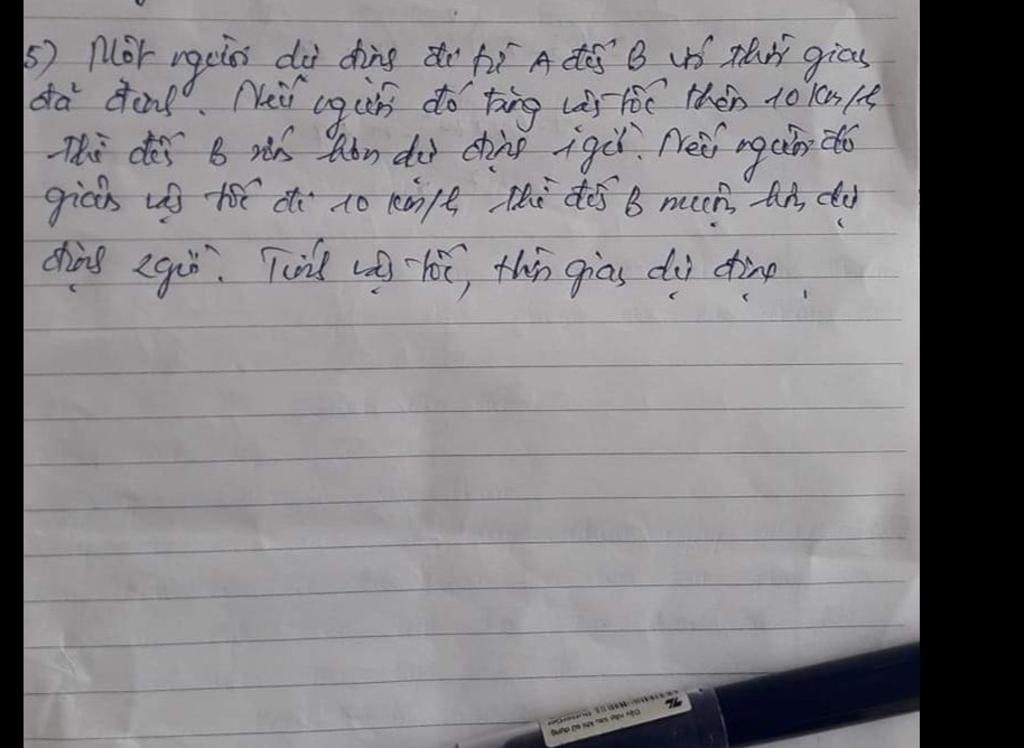 5) Một người dự định đi từ A đến B với thời gian
đã định. Nếu người đó tăng vận tốc thêm 10 km/h
thì đến B sớm hơn dự định 1 giờ. Nếu người đó
giảm vận tốc đi 10 km/h thì đến B muộn hơn dự
định 2 giờ. Tính vận tốc, thời gian dự định.
TL
Đậy nắp sau khi sử dụng